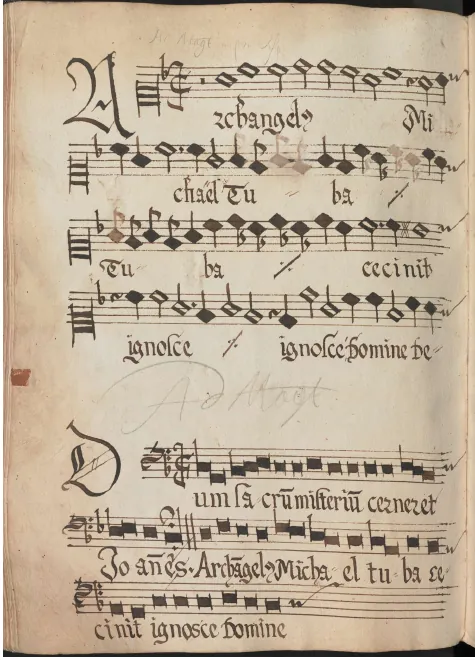 Archangelꝰ Mi
chael Tu ba ⁒
Tu ba ⁒ cecinit
ignosce ⁒ ignosce domine de-
Ad Magt
Dum sa crũ misteriũ cerneret
Jo anẽs. Archãgelꝰ Micha el tu ba ce
cinit ignosce domine